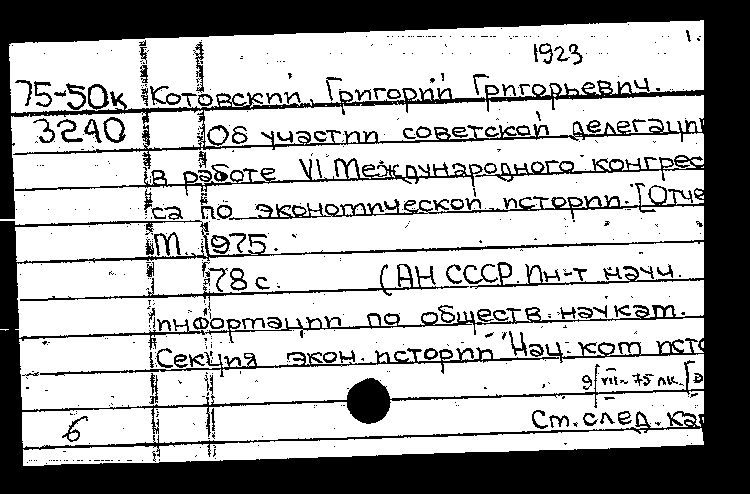 1923 1.
75-50к Котовский, Григорий Григорьевич.
3240 Об участии советской делегации
в работе VI Международного конгрес
са по экономической истории. [Отче
М. 1975.
78 с. (АН СССР. Ин-т науч.
информации по обществ. наукам.
Секция экон. истории Нац. ком исто
9/VII-75 лк.
6 См. след. кар